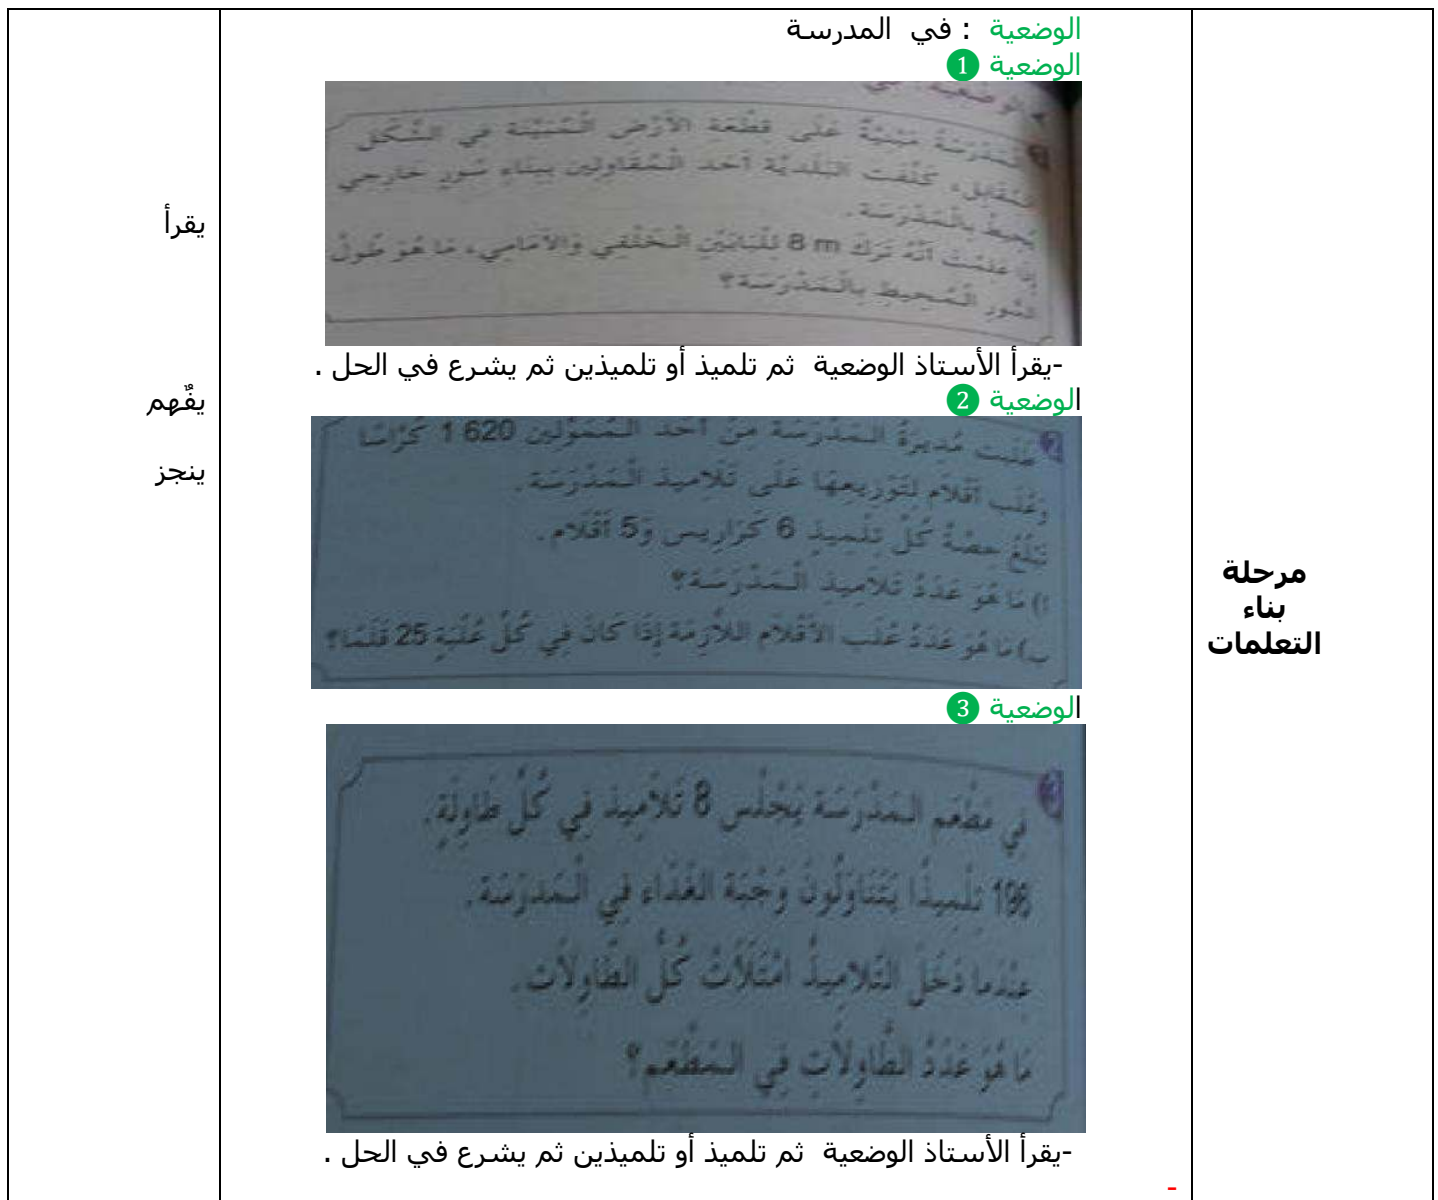 مرحلة
بناء
التعلمات
الوضعية : في المدرسة
الوضعية 1
الْمَدْرَسَةُ مَبْنِيَّةٌ عَلَى قِطْعَةِ الْأَرْضِ الْمُبَيَّنَةِ فِي الشَّكْلِ
الْمُقَابِلِ، كَلَّفَتِ الْبَلَدِيَّةُ أَحَدَ الْمُقَاوِلِينَ بِبِنَاءِ سُورٍ خَارِجِيٍّ
يُحِيطُ بِالْمَدْرَسَةِ.
إِذَا عَلِمْتَ أَنَّهُ تَرَكَ 8 m لِلْبَابَيْنِ الْخَلْفِي وَالْأَمَامِي، مَا هُوَ طُولُ
السُّورِ الْمُحِيطِ بِالْمَدْرَسَةِ؟
-يقرأ الأستاذ الوضعية ثم تلميذ أو تلميذين ثم يشرع في الحل .
الوضعية 2
2 طَلَبَتْ مُدِيرَةُ الْمَدْرَسَةِ مِنْ أَحَدِ الْمُمَوِّلِينَ 620 1 كُرَّاسًا
وَعُلَبَ أَقْلَامٍ لِتَوْزِيعِهَا عَلَى تَلَامِيذِ الْمَدْرَسَةِ.
تَبْلُغُ حِصَّةُ كُلِّ تِلْمِيذٍ 6 كَرَارِيسَ وَ5 أَقْلَامٍ.
أ) مَا هُوَ عَدَدُ تَلَامِيذِ الْمَدْرَسَةِ؟
ب) مَا هُوَ عَدَدُ عُلَبِ الْأَقْلَامِ اللَّازِمَةِ إِذَا كَانَ فِي كُلِّ عُلْبَةٍ 25 قَلَمًا؟
الوضعية 3
فِي مَطْعَمِ الْمَدْرَسَةِ يَجْلِسُ 8 تَلَامِيذَ فِي كُلِّ طَاوِلَةٍ.
تِلْمِيذًا يَتَنَاوَلُونَ وَجْبَةَ الْغَدَاءِ فِي الْمَدْرَسَةِ.
عِنْدَمَا دَخَلَ التَّلَامِيذُ امْتَلَأَتْ كُلُّ الطَّاوِلَاتِ.
مَا هُوَ عَدَدُ الطَّاوِلَاتِ فِي الْمَطْعَمِ؟
-يقرأ الأستاذ الوضعية ثم تلميذ أو تلميذين ثم يشرع في الحل .
-
يقرأ
يفٌهم
ينجز